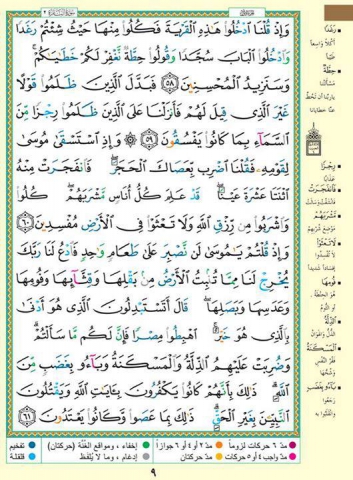 وَإِذْ قُلْنَا ٱدْخُلُوا۟ هَـٰذِهِ ٱلْقَرْيَةَ فَكُلُوا۟ مِنْهَا حَيْثُ شِئْتُمْ رَغَدًا
وَٱدْخُلُوا۟ ٱلْبَابَ سُجَّدًا وَقُولُوا۟ حِطَّةٌ نَّغْفِرْ لَكُمْ خَطَـٰيَـٰكُمْ ۚ
وَسَنَزِيدُ ٱلْمُحْسِنِينَ ٥٨ فَبَدَّلَ ٱلَّذِينَ ظَلَمُوا۟ قَوْلًا
غَيْرَ ٱلَّذِى قِيلَ لَهُمْ فَأَنزَلْنَا عَلَى ٱلَّذِينَ ظَلَمُوا۟ رِجْزًا مِّنَ
ٱلسَّمَآءِ بِمَا كَانُوا۟ يَفْسُقُونَ ٥٩ ۞ وَإِذِ ٱسْتَسْقَىٰ مُوسَىٰ
لِقَوْمِهِۦ فَقُلْنَا ٱضْرِب بِّعَصَاكَ ٱلْحَجَرَ ۖ فَٱنفَجَرَتْ مِنْهُ
ٱثْنَتَا عَشْرَةَ عَيْنًا ۖ قَدْ عَلِمَ كُلُّ أُنَاسٍ مَّشْرَبَهُمْ ۖ كُلُوا۟
وَٱشْرَبُوا۟ مِن رِّزْقِ ٱللَّهِ وَلَا تَعْثَوْا۟ فِى ٱلْأَرْضِ مُفْسِدِينَ ٦٠
وَإِذْ قُلْتُمْ يَـٰمُوسَىٰ لَن نَّصْبِرَ عَلَىٰ طَعَامٍ وَٰحِدٍ فَٱدْعُ لَنَا رَبَّكَ
يُخْرِجْ لَنَا مِمَّا تُنۢبِتُ ٱلْأَرْضُ مِنۢ بَقْلِهَا وَقِثَّآئِهَا وَفُومِهَا
وَعَدَسِهَا وَبَصَلِهَا ۖ قَالَ أَتَسْتَبْدِلُونَ ٱلَّذِى هُوَ أَدْنَىٰ
بِٱلَّذِى هُوَ خَيْرٌ ۚ ٱهْبِطُوا۟ مِصْرًا فَإِنَّ لَكُم مَّا سَأَلْتُمْ ۗ
وَضُرِبَتْ عَلَيْهِمُ ٱلذِّلَّةُ وَٱلْمَسْكَنَةُ وَبَآءُو بِغَضَبٍ مِّنَ
ٱللَّهِ ۗ ذَٰلِكَ بِأَنَّهُمْ كَانُوا۟ يَكْفُرُونَ بِـَٔايَـٰتِ ٱللَّهِ وَيَقْتُلُونَ
ٱلنَّبِيِّـۧنَ بِغَيْرِ ٱلْحَقِّ ۗ ذَٰلِكَ بِمَا عَصَوا۟ وَّكَانُوا۟ يَعْتَدُونَ ٦١
رَغَدًا
حِطَّةٌ
رِجْزًا
فَانفَجَرَتْ
مَشْرَبَهُمْ
لَا تَعْثَوْا
فُومِهَا
الذِّلَّةُ
الْمَسْكَنَةُ
مدّ ٦ حركات لزوماً مدّ ٢ أو ٤ أو ٦ جوازاً إخفاء، ومواقع الغُنَّة (حركتان) تفخيم
مدّ واجب ٤ أو ٥ حركات مدّ حركتان إدغام، وما لا يُلفَظ قلقلة
٩